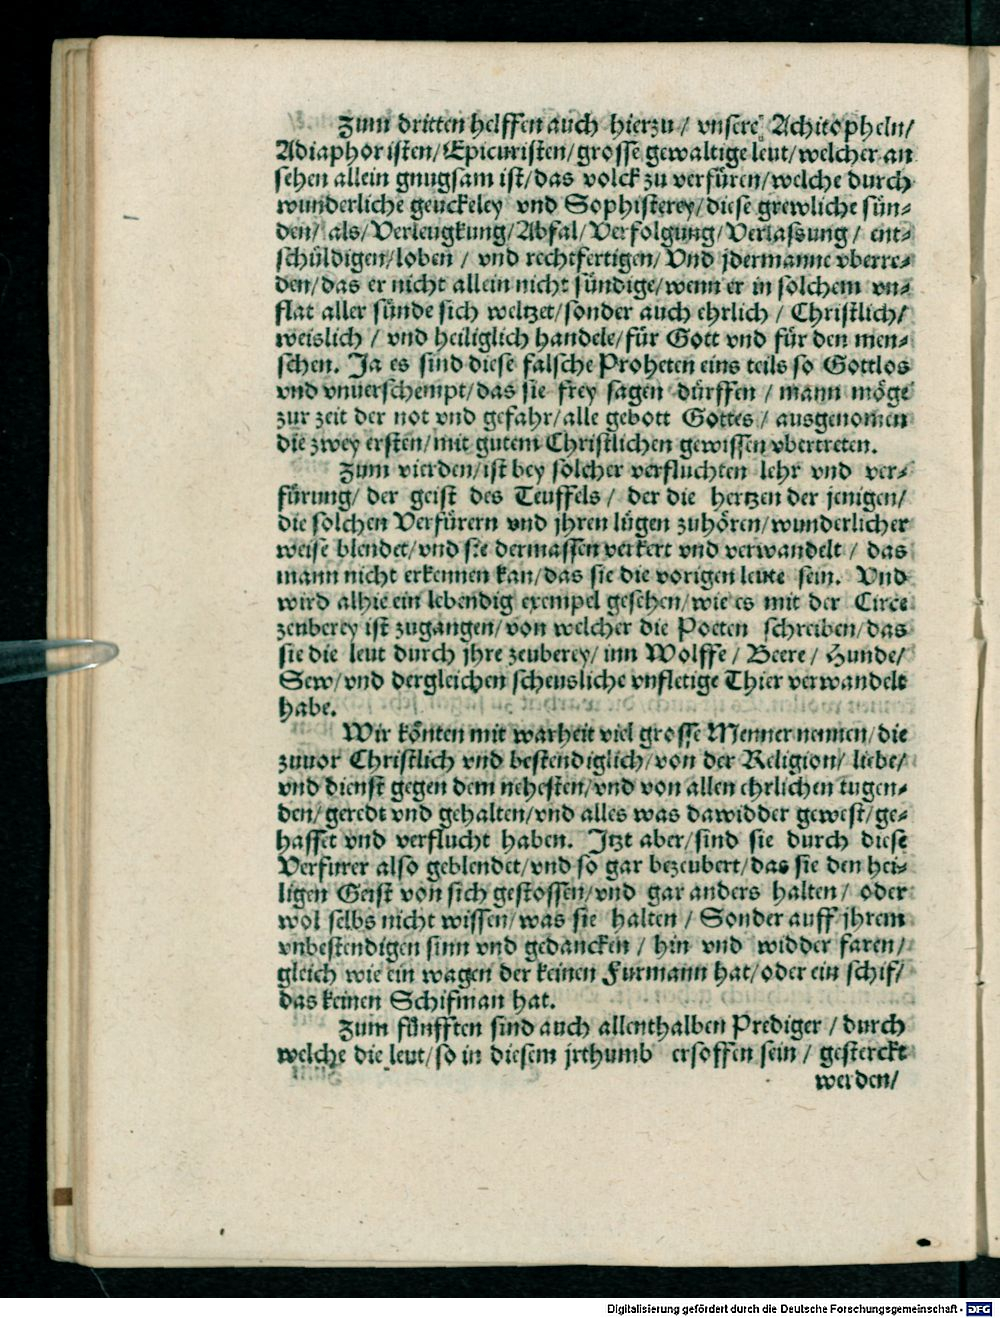 Zum dritten helffen auch hierzu / vnsere Achitopheln/
Adiaphoristen/Epicuristen/grosse gewaltige leut/welcher an
sehen allein gnugsam ist/das volck zu verfüren/welche durch
wunderliche geuckeley vnd Sophisterey/diese grewliche sün-
den/ als/Verleugkung/Abfal/Verfolgung/Verlassung / ent-
schüldigen/loben / vnd rechtfertigen/ Vnd jdermanne vberre-
den/das er nicht allein nicht sündige/wenn er in solchem vn-
flat aller sünde sich weltzet/sonder auch ehrlich / Christlich/
weislich / vnd heiliglich handele/für Gott vnd für den men-
schen. Ja es sind diese falsche Proheten eins teils so Gottlos
vnd vnuerschempt/das sie frey sagen dürffen / mann möge
zur zeit der not vnd gefahr/alle gebott Gottes / ausgenomen
die zwey ersten/mit gutem Christlichen gewissen vbertreten.
Zum vierden/ist bey solcher verfluchten lehr vnd ver-
fürung/ der geist des Teuffels / der die hertzen der jenigen/
die solchen Verfürern vnd jhren lügen zuhören/wunderlicher
weise blendet/vnd sie dermassen verkert vnd verwandelt / das
mann nicht erkennen kan/das sie die vorigen leute sein. Vnd
wird alhie ein lebendig exempel gesehen/wie es mit der Circe
zeuberey ist zugangen/von welcher die Poeten schreiben/das
sie die leut durch jhre zeuberey/ inn Wolffe / Beere / Hunde/
Sew/vnd dergleichen scheusliche vnfletige Thier verwandelt
habe.
Wir könten mit warheit viel grosse Menner nennen/die
zuuor Christlich vnd bestendiglich/von der Religion/ liebe/
vnd dienst gegen dem nehesten/vnd von allen ehrlichen tugen-
den/geredt vnd gehalten/vnd alles was dawidder gewest/ge-
hasset vnd verflucht haben. Jtzt aber/sind sie durch diese
Verfurer also geblendet/vnd so gar bezeubert/das sie den hei-
ligen Geist von sich gestossen/vnd gar anders halten/ oder
wol selbs nicht wissen/was sie halten / Sonder auff jhrem
vnbestendigen sinn vnd gedancken / hin vnd widder faren/
gleich wie ein wagen der keinen Furmann hat/oder ein schif/
das keinen Schifman hat.
Zum fünfften sind auch allenthalben Prediger / durch
welche die leut/so in diesem jrthumb ersoffen sein / gesterckt
werden/
Digitalisierung gefördert durch die Deutsche Forschungsgemeinschaft - DFG